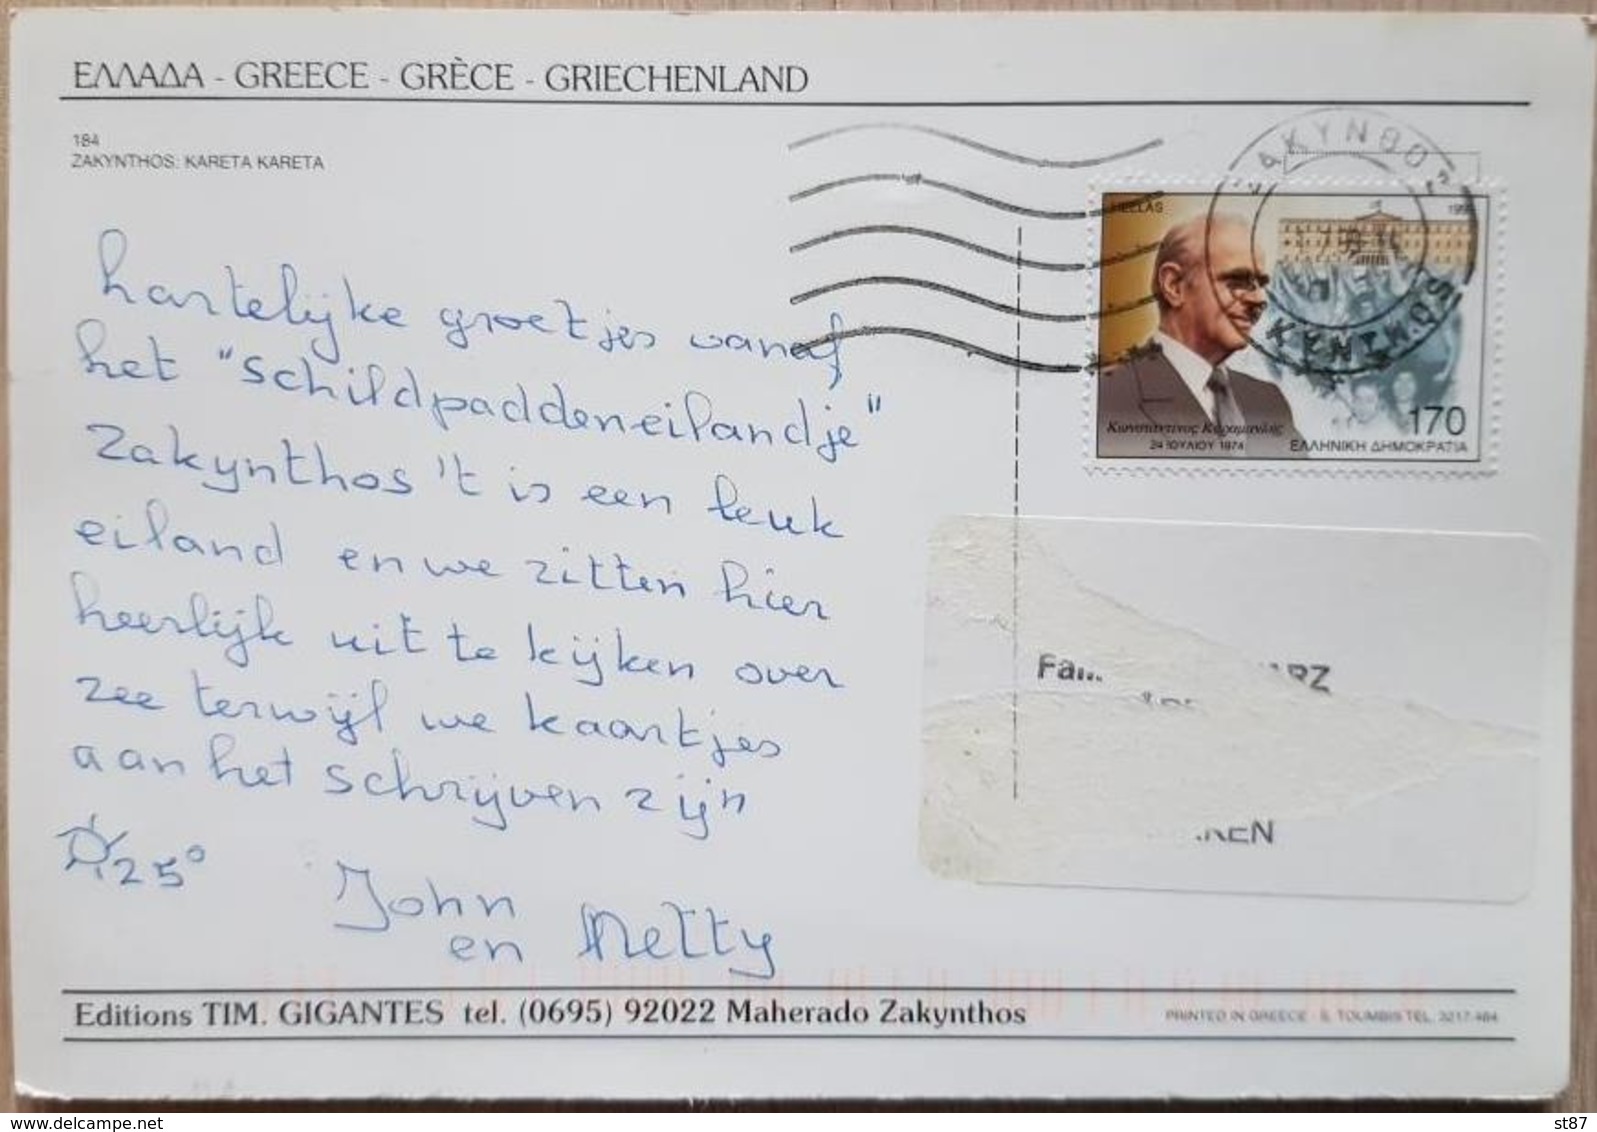 ΕΛΛΑΔΑ - GREECE - GRÈCE - GRIECHENLAND
184
ZAKYNTHOS: KARETA KARETA
hartelijke groetjes vanaf
het "schildpaddeneilandje"
Zakynthos 't is een leuk
eiland en we zitten hier
heerlijk uit te kijken over
zee terwijl we kaartjes
aan het schrijven zijn
25°
John
en Netty
ΖΑΚΥΝΘΟΣ
HELLAS
Κωνσταντίνος Καραμανλής
24 ΙΟΥΛΙΟΥ 1974
170
ΕΛΛΗΝΙΚΗ ΔΗΜΟΚΡΑΤΙΑ
Editions TIM. GIGANTES tel. (0695) 92022 Maherado Zakynthos
PRINTED IN GREECE - S. TOUMBIS TEL. 3217-484
delcampe.net
st87